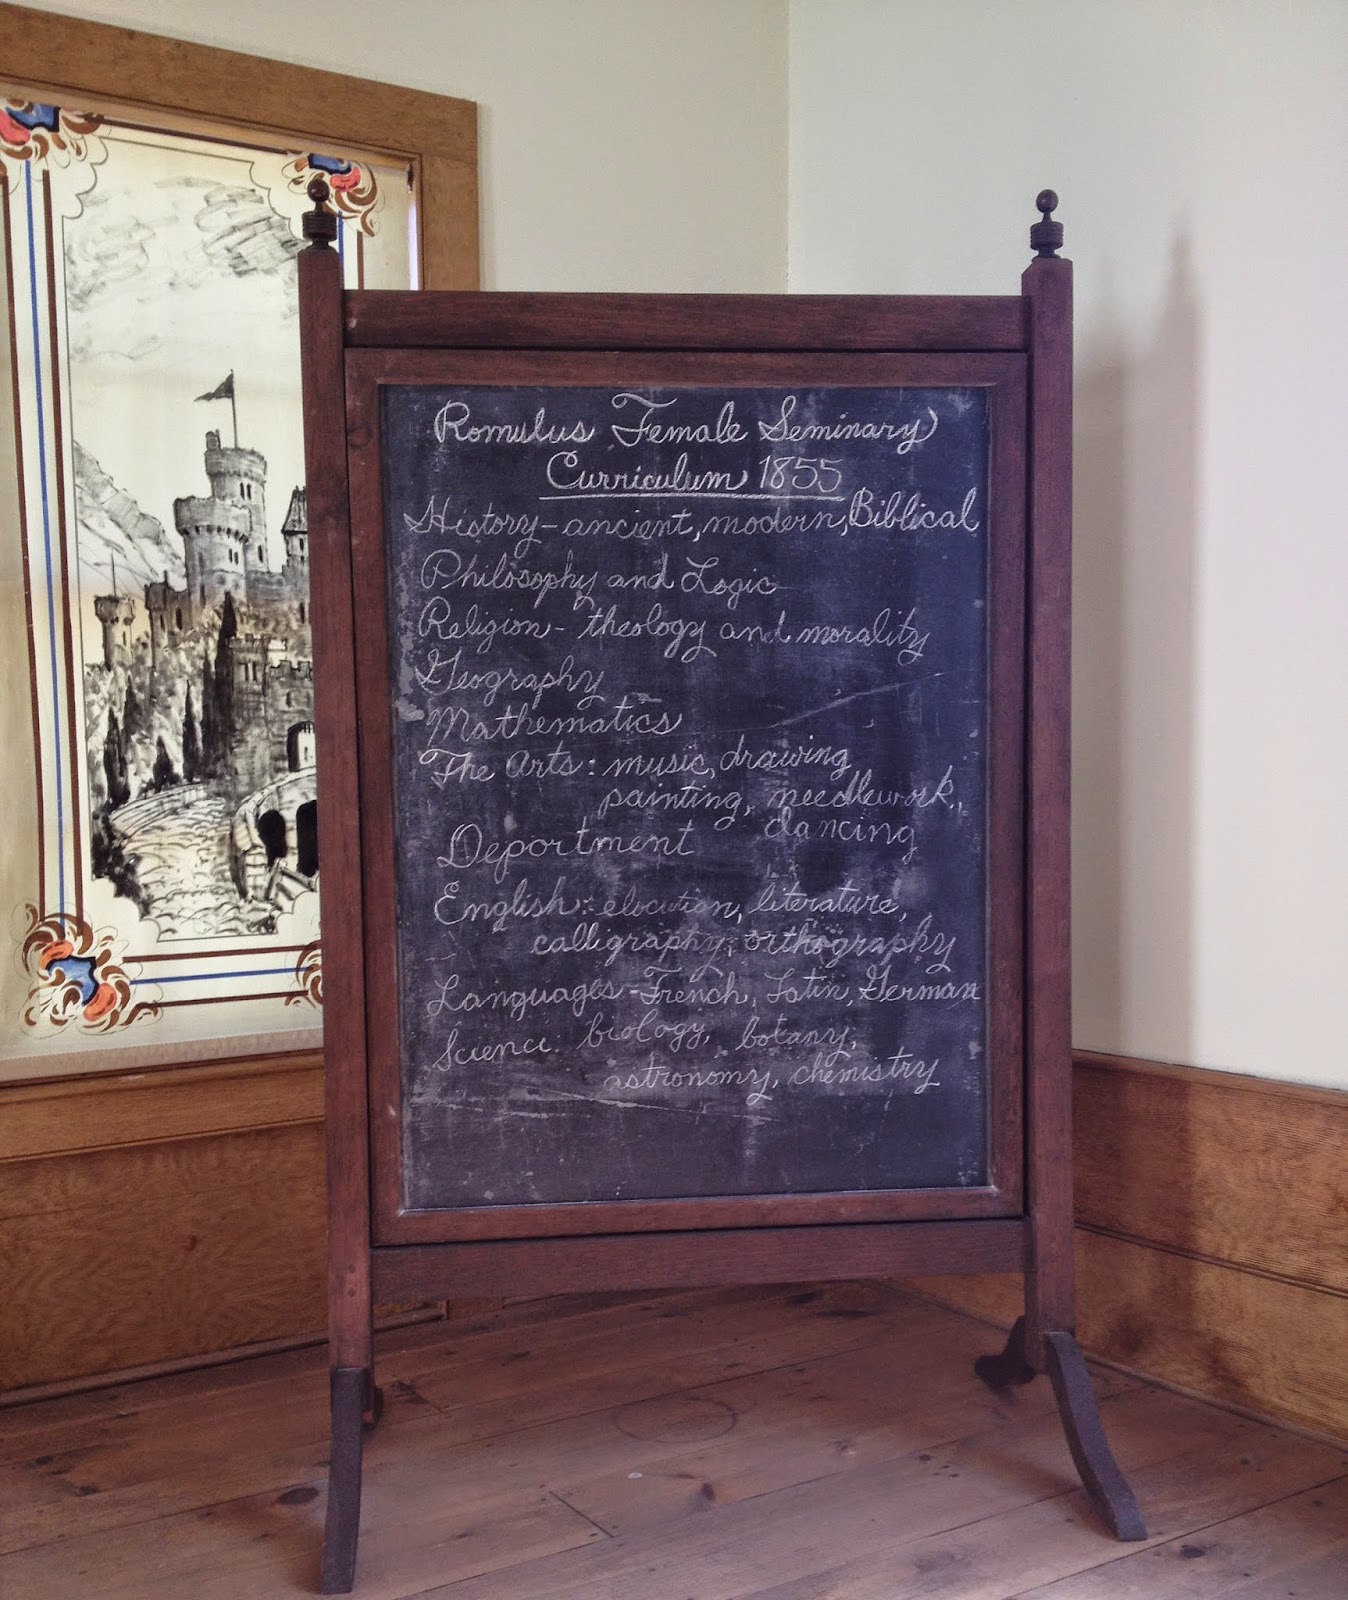 Romulus Female Seminary
Curriculum 1855
History - ancient, modern, Biblical
Philosophy and Logic
Religion - theology and morality
Geography
Mathematics
The Arts: music, drawing
painting, needlework,
dancing
Deportment
English: elocution, literature,
calligraphy, orthography
Languages - French, Latin, German
Science: biology, botany,
astronomy, chemistry